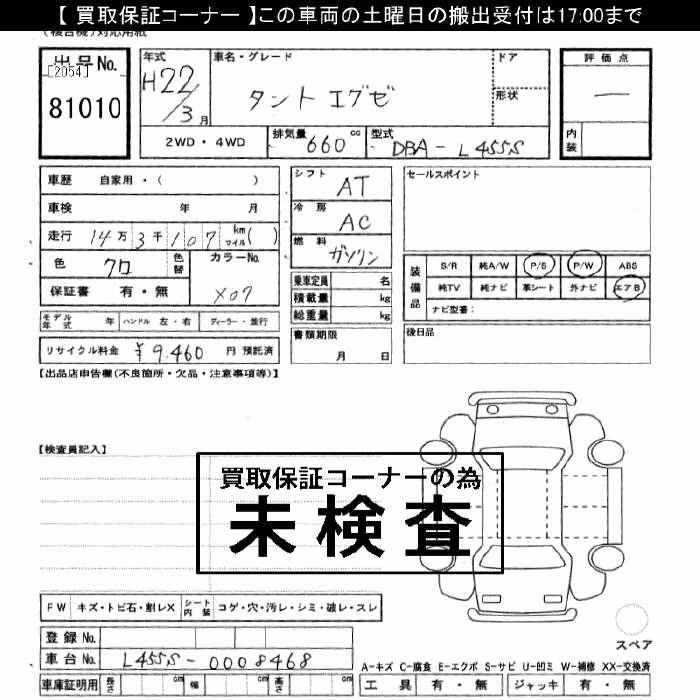 【 買取保証コーナー 】この車両の土曜日の搬出受付は17:00まで
(複合機)対応用紙
出品No.
[2054]
81010
年式
H22/3月
車名・グレード
タント エグゼ
ドア
形状
評価点
一
内装
2WD・4WD
排気量
660cc
型式
DBA-L455S
車歴 自家用・( )
車検 年 月
走行 14万3千107 km マイル( )
色 クロ 色替
カラーNo.
X07
保証書 有・無
シフト AT
冷房 AC
燃料 ガソリン
乗車定員 名
積載量 kg
総重量 kg
書類期限
月 日
セールスポイント
装備品
S/R 純A/W P/S P/W ABS
純TV 純ナビ 革シート 外ナビ エアB
ナビ型番:
後日品
モデル年式 年 ハンドル 左・右 ディーラー・並行
リサイクル料金 ¥9,460 円 預託済
【出品店申告欄(不良箇所・欠品・注意事項等)】
【検査員記入】
買取保証コーナーの為
未検査
FW キズ・トビ石・割レX シート内装 コゲ・穴・汚レ・シミ・破レ・スレ
スペア
登録 No.
車台 No. L455S-0008468
車庫証明用 長さ cm 幅 cm 高さ cm
A-キズ C-腐食 E-エクボ S-サビ U-凹ミ W-補修 XX-交換済
工具 有・無 ジャッキ 有・無